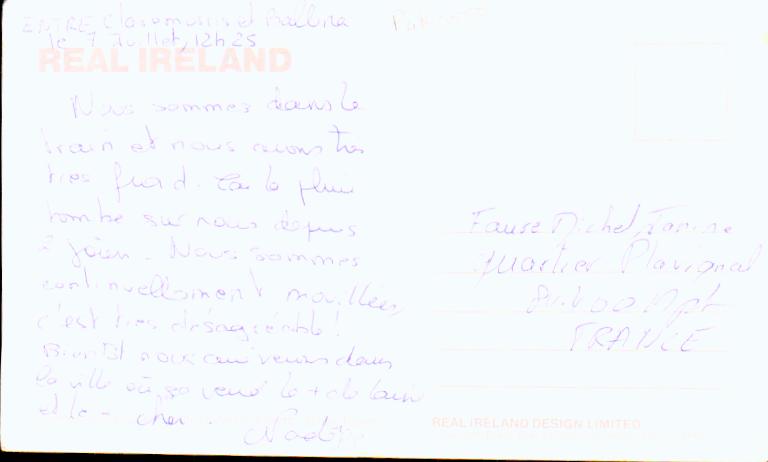 ENTRE Claremorris et Ballina
le 7 Juillet, 12h25
REAL IRELAND
Nous sommes dans le
train et nous avons très
très froid. Car la pluie
tombe sur nous depuis
2 jours. Nous sommes
continuellement mouillées,
c'est très désagréable!
Bientôt nous arriverons dans
la ville où se vend le + de laine
et le - cher.
Fause Michel, Janine
quartier Plavignal
FRANCE
REAL IRELAND DESIGN LIMITED